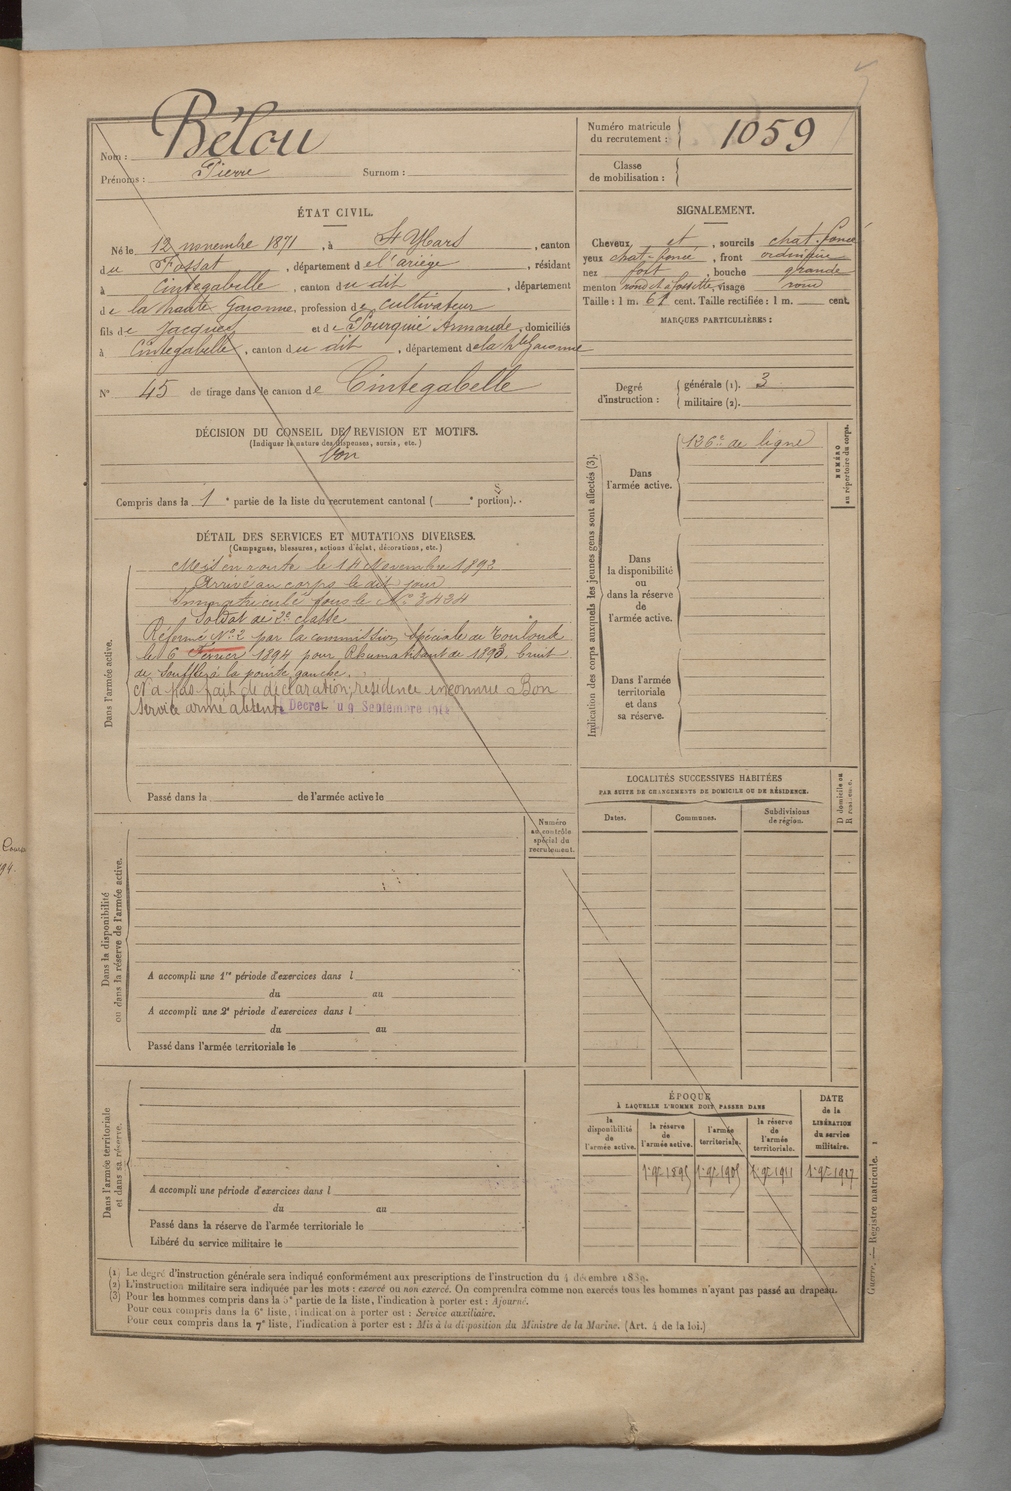 Bélou
Nom :
Prénoms : Pierre Surnom :
Numéro matricule du recrutement : 1059
Classe de mobilisation :
ÉTAT CIVIL.
Né le 12 novembre 1871, à St Ybars, canton
du Fossat, département de l'ariège, résidant
à Cintegabelle, canton du dit, département
de la haute Garonne, profession de cultivateur
fils de Jacques et de Pourquié Armande, domiciliés
à Cintegabelle, canton du dit, département de la hte Garonne
No 45 de tirage dans le canton de Cintegabelle
SIGNALEMENT.
Cheveux et, sourcils chat. foncé
yeux chat-foncé, front ordinaire
nez fort, bouche grande
menton rond et à fossette, visage rond
Taille : 1 m. 61 cent. Taille rectifiée : 1 m. cent.
MARQUES PARTICULIÈRES :
Degré d'instruction : générale (1). 3
militaire (2).
DÉCISION DU CONSEIL DE REVISION ET MOTIFS.
(Indiquer la nature des dispenses, sursis, etc.)
bon
Compris dans la 1e partie de la liste du recrutement cantonal ( e portion).
DÉTAIL DES SERVICES ET MUTATIONS DIVERSES.
(Campagnes, blessures, actions d'éclat, décorations, etc.)
Dans l'armée active.
Mis en route le 14 Novembre 1892
Arrivé au corps le dit jour
Immatriculé sous le No 3434
Soldat de 2e classe
Réformé No 2 par la commission spéciale de Toulouse
le 6 Février 1894 pour Rhumatisant de 1893. bruit
de souffle à la pointe gauche.
N'a pas fait de déclaration, résidence inconnue Bon
service armé absent Décret du 9 Septembre
Passé dans la de l'armée active le
Indication des corps auxquels les jeunes gens sont affectés (3).
NUMÉRO au répertoire du corps.
Dans l'armée active. 126e de ligne
Dans la disponibilité ou dans la réserve de l'armée active.
Dans l'armée territoriale et dans sa réserve.
LOCALITÉS SUCCESSIVES HABITÉES
PAR SUITE DE CHANGEMENTS DE DOMICILE OU DE RÉSIDENCE.
D domicile ou R résidence.
Dates. Communes. Subdivisions de région.
Numéro au contrôle spécial du recrutement.
Dans la disponibilité ou dans la réserve de l'armée active.
A accompli une 1re période d'exercices dans l
du au
A accompli une 2e période d'exercices dans l
du au
Passé dans l'armée territoriale le
Dans l'armée territoriale et dans sa réserve.
A accompli une période d'exercices dans l
du au
Passé dans la réserve de l'armée territoriale le
Libéré du service militaire le
ÉPOQUE
À LAQUELLE L'HOMME DOIT PASSER DANS
DATE de la LIBÉRATION du service militaire.
la disponibilité de l'armée active. la réserve de l'armée active. l'armée territoriale. la réserve de l'armée territoriale.
(1) Le degré d'instruction générale sera indiqué conformément aux prescriptions de l'instruction du 4 décembre 1889.
(2) L'instruction militaire sera indiquée par les mots : exercé ou non exercé. On comprendra comme non exercés tous les hommes n'ayant pas passé au drapeau.
(3) Pour les hommes compris dans la 5e partie de la liste, l'indication à porter est : Ajourné.
Pour ceux compris dans la 6e liste, l'indication à porter est : Service auxiliaire.
Pour ceux compris dans la 7e liste, l'indication à porter est : Mis à la disposition du Ministre de la Marine. (Art. 4 de la loi.)
Guerre. — Registre matricule.